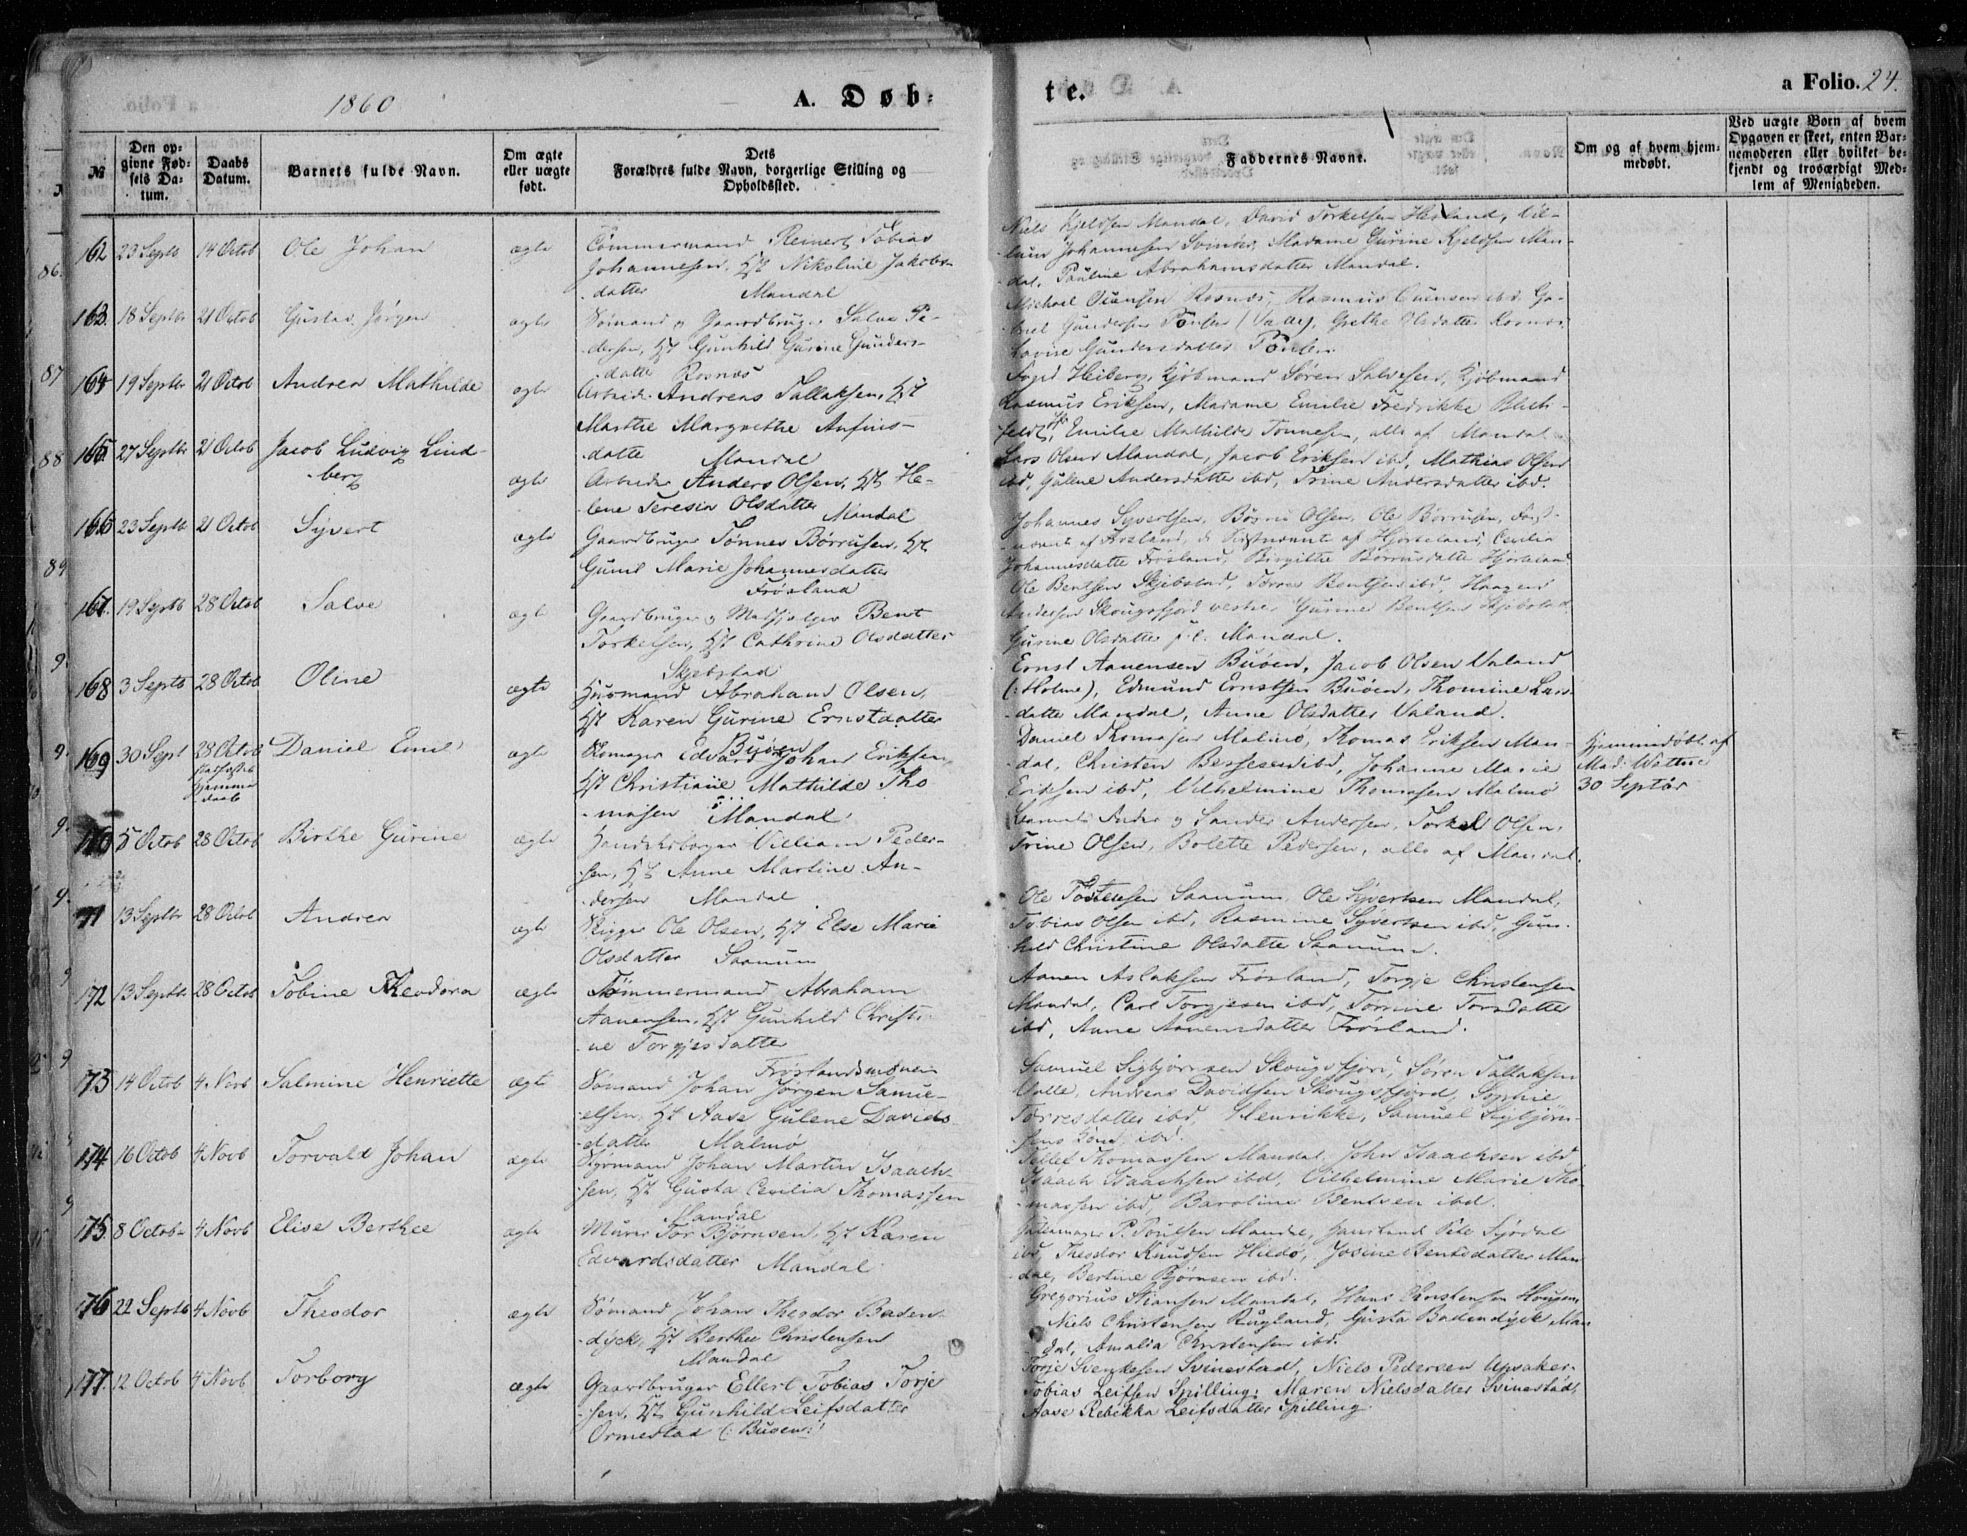 1860
A. Døb-
te.
a Folio. 24.
№
Den op-
givne Fød-
sels Da-
tum.
Daabs
Datum.
Barnets fulde Navn.
Om ægte
eller uægte
født.
Dets
Forældres fulde Navn, borgerlige Stilling og
Opholdssted.
Faddernes Navne.
Om og af hvem hjem-
medøbt.
Ved uægte Børn af hvem
Opgaven er skeet, enten Bar-
nemoderen eller hvilket be-
kjendt og troværdigt Med-
lem af Menigheden.
162 23 Septb 14 Octob Ole Johan ægte Tömmermand Reinert Tobias
Johannesen, Hst Nikoline Jakobs-
datter Mandal
Niels Kjeldsen Mandal, David Torkelsen Hesland, Vil-
lum Johannesen Svinør, Madame Gurine Kjeldsen Man-
dal, Pauline Abrahamsdatter Mandal.
163. 18 Septbr 21 Octob Gustav Jørgen ægte Sømand og Gaardbruger Salve Pe-
dersen, Hst Gunhild Gurine Gunders-
datte Rosnæs
Michael Rosnæs, Rasmus ibd. Ga-
briel Gundersen (Valle), Grethe Olsdatter Rosnæs
Lovise Gundersdatter
164 19 Septbr 21 Octob Andrea Mathilde ægte Arbeid. Andreas Tallaksen, Hst
Marthe Margrethe Anfins-
datte Mandal
Heiberg, Kjöbmand Sören Salvesen, Kjöbmand
Rasmus Eriksen, Madame Emilie Fredrikke
Emilie Mathilde Tönnesen, alle af Mandal
165 27 Septbr 21 Octob Jacob Ludvig Lind-
berg ægte Arbeider Anders Olsen, Hst He-
lene Teresia Olsdatter
Mandal
Lars Olsen Mandal, Jacob Eriksen ibd, Mathias Olsen
ibd, Gulene Andersdatter ibd, Trine Andersdatter ibd.
166 23 Septb 21 Octob Syvert ægte Gaardbruger Tønnes Børrusen, Hst
Gunil Marie Johannesdatter
Frøsland
Johannes Syvertsen, Børru Olsen, Ole Børrusen,
af Frøsland, af Hjorteland, Cecilia
Johannesdatte Frøsland, Birgitte Børrusdatte Hjorteland
167. 19 Septb 28 Octob Salve ægte Gaardbruger og Bent
Torkelsen, Hst Cathrine Olsdatter
Skjebstad
Ole Bentsen Skjebstad, Bentsen ibd, Haagen
Andersen Skougsfjord vestre, Gurine Bentsen Skjebstad
Gurine Olsdatter Mandal.
168 3 Septb 28 Octob Oline ægte Huusmand Abraham Olsen,
Hst Karen Gurine Ernstdatter
Buøen
Ernst Aanensen Buöen, Jacob Olsen Valand
(:Holme), Edmund Ernstsen Buöen, Thomine Lars-
datte Mandal, Anne Olsdatter Valand.
169 30 Sept 28 Octob Daniel Emil ægte Skomager Edvard Johan Eriksen
Hst Christiane Mathilde Tho-
masen i Mandal
Daniel Thomasen Malmö, Thomas Eriksen Man-
dal, Christen ibd, Johanne Marie
Eriksen ibd, Vilhelmine Thomasen Malmö
Hjemmedøbt af
Mad: Wattne
30 Septbr
170 5 Octob 28 Octob Birthe Gurine ægte Villiam Peder-
sen, Hst Anne Martine An-
dersen Mandal
og Sander Andersen, Torkel Olsen,
Trine Olsen, Bolette Pedersen, alle af Mandal.
171 13 Septbr 28 Octob Andrea ægte Rigger Ole Olsen, Hst Else Marie
Olsdatter Saanum
Ole Saanum, Ole Syvertsen Mandal,
Tobias Olsen ibd, Rasmine Syvertsen ibd, Gun-
hild Christine Olsdatter Saanum.
172 13 Septbr 28 Octob Tobine Theodora ægte Tömmermand Abraham
Aanensen, Hst Gunhild Christi-
ne Torgjesdatter
Frøslandsmoen
Aanen Aslaksen Frøsland, Torgje Christensen
Mandal, Carl Torgjesen ibd, Tomine Torsdatter
ibd, Anne Aanensdatter Frøsland.
173 14 Octob 4 Novb Salmine Henriette ægte Sømand Johan Jørgen Samu-
elsen, Hst Aase Gulene Davids-
datter Malmø
Samuel Sigbjørnsen Skougsfjord, Sören Tallaksen
Valle, Andreas Davidsen Skougsfjord, Sophie
Torresdatter ibd, Henrikke, Samuel Sigbjörn-
sens Kone ibd.
174 16 Octob 4 Novb Torvald Johan ægte Styrmand Johan Martin Isaach-
sen, Hst Gusta Cecilia Thomassen
Mandal
Tellef Thomassen Mandal, John Isaachsen ibd
Isaach Isaachsen ibd, Vilhelmine Marie Tho-
massen ibd, Baroline Bentsen ibd.
175 8 Octob 4 Novb Elise Berthee ægte Murer Tor Bjørnsen, Hst Karen
Edvardsdatter Mandal
P. Poulsen Mandal, Peter Sjödal
ibd, Theodor Knudsen Hildö, Josine Bentsdatter Man-
dal, Bertine Bjørnsen ibd.
176 22 Septb 4 Novb Theodor ægte Sømand Johan Theodor Baden-
dyck, Hst Berthee Christensen
Mandal
Gregorius Stiansen Mandal, Hans Christensen Haugen,
Niels Christensen Rugland, Gusta Badendyck Man-
dal, Amalia Christensen ibd.
177. 12 Octob 4 Novb Torborg ægte Gaardbruger Ellert Tobias Torje-
sen, Hst Gunhild Leifsdatter
Ormestad (: Buøen:)
Torje Svenkesen Svinestad, Niels Pedersen Upsaker
Tobias Leifsen Spilling, Maren Nielsdatter Svinestad,
Aase Rebekka Leifsdatter Spilling.